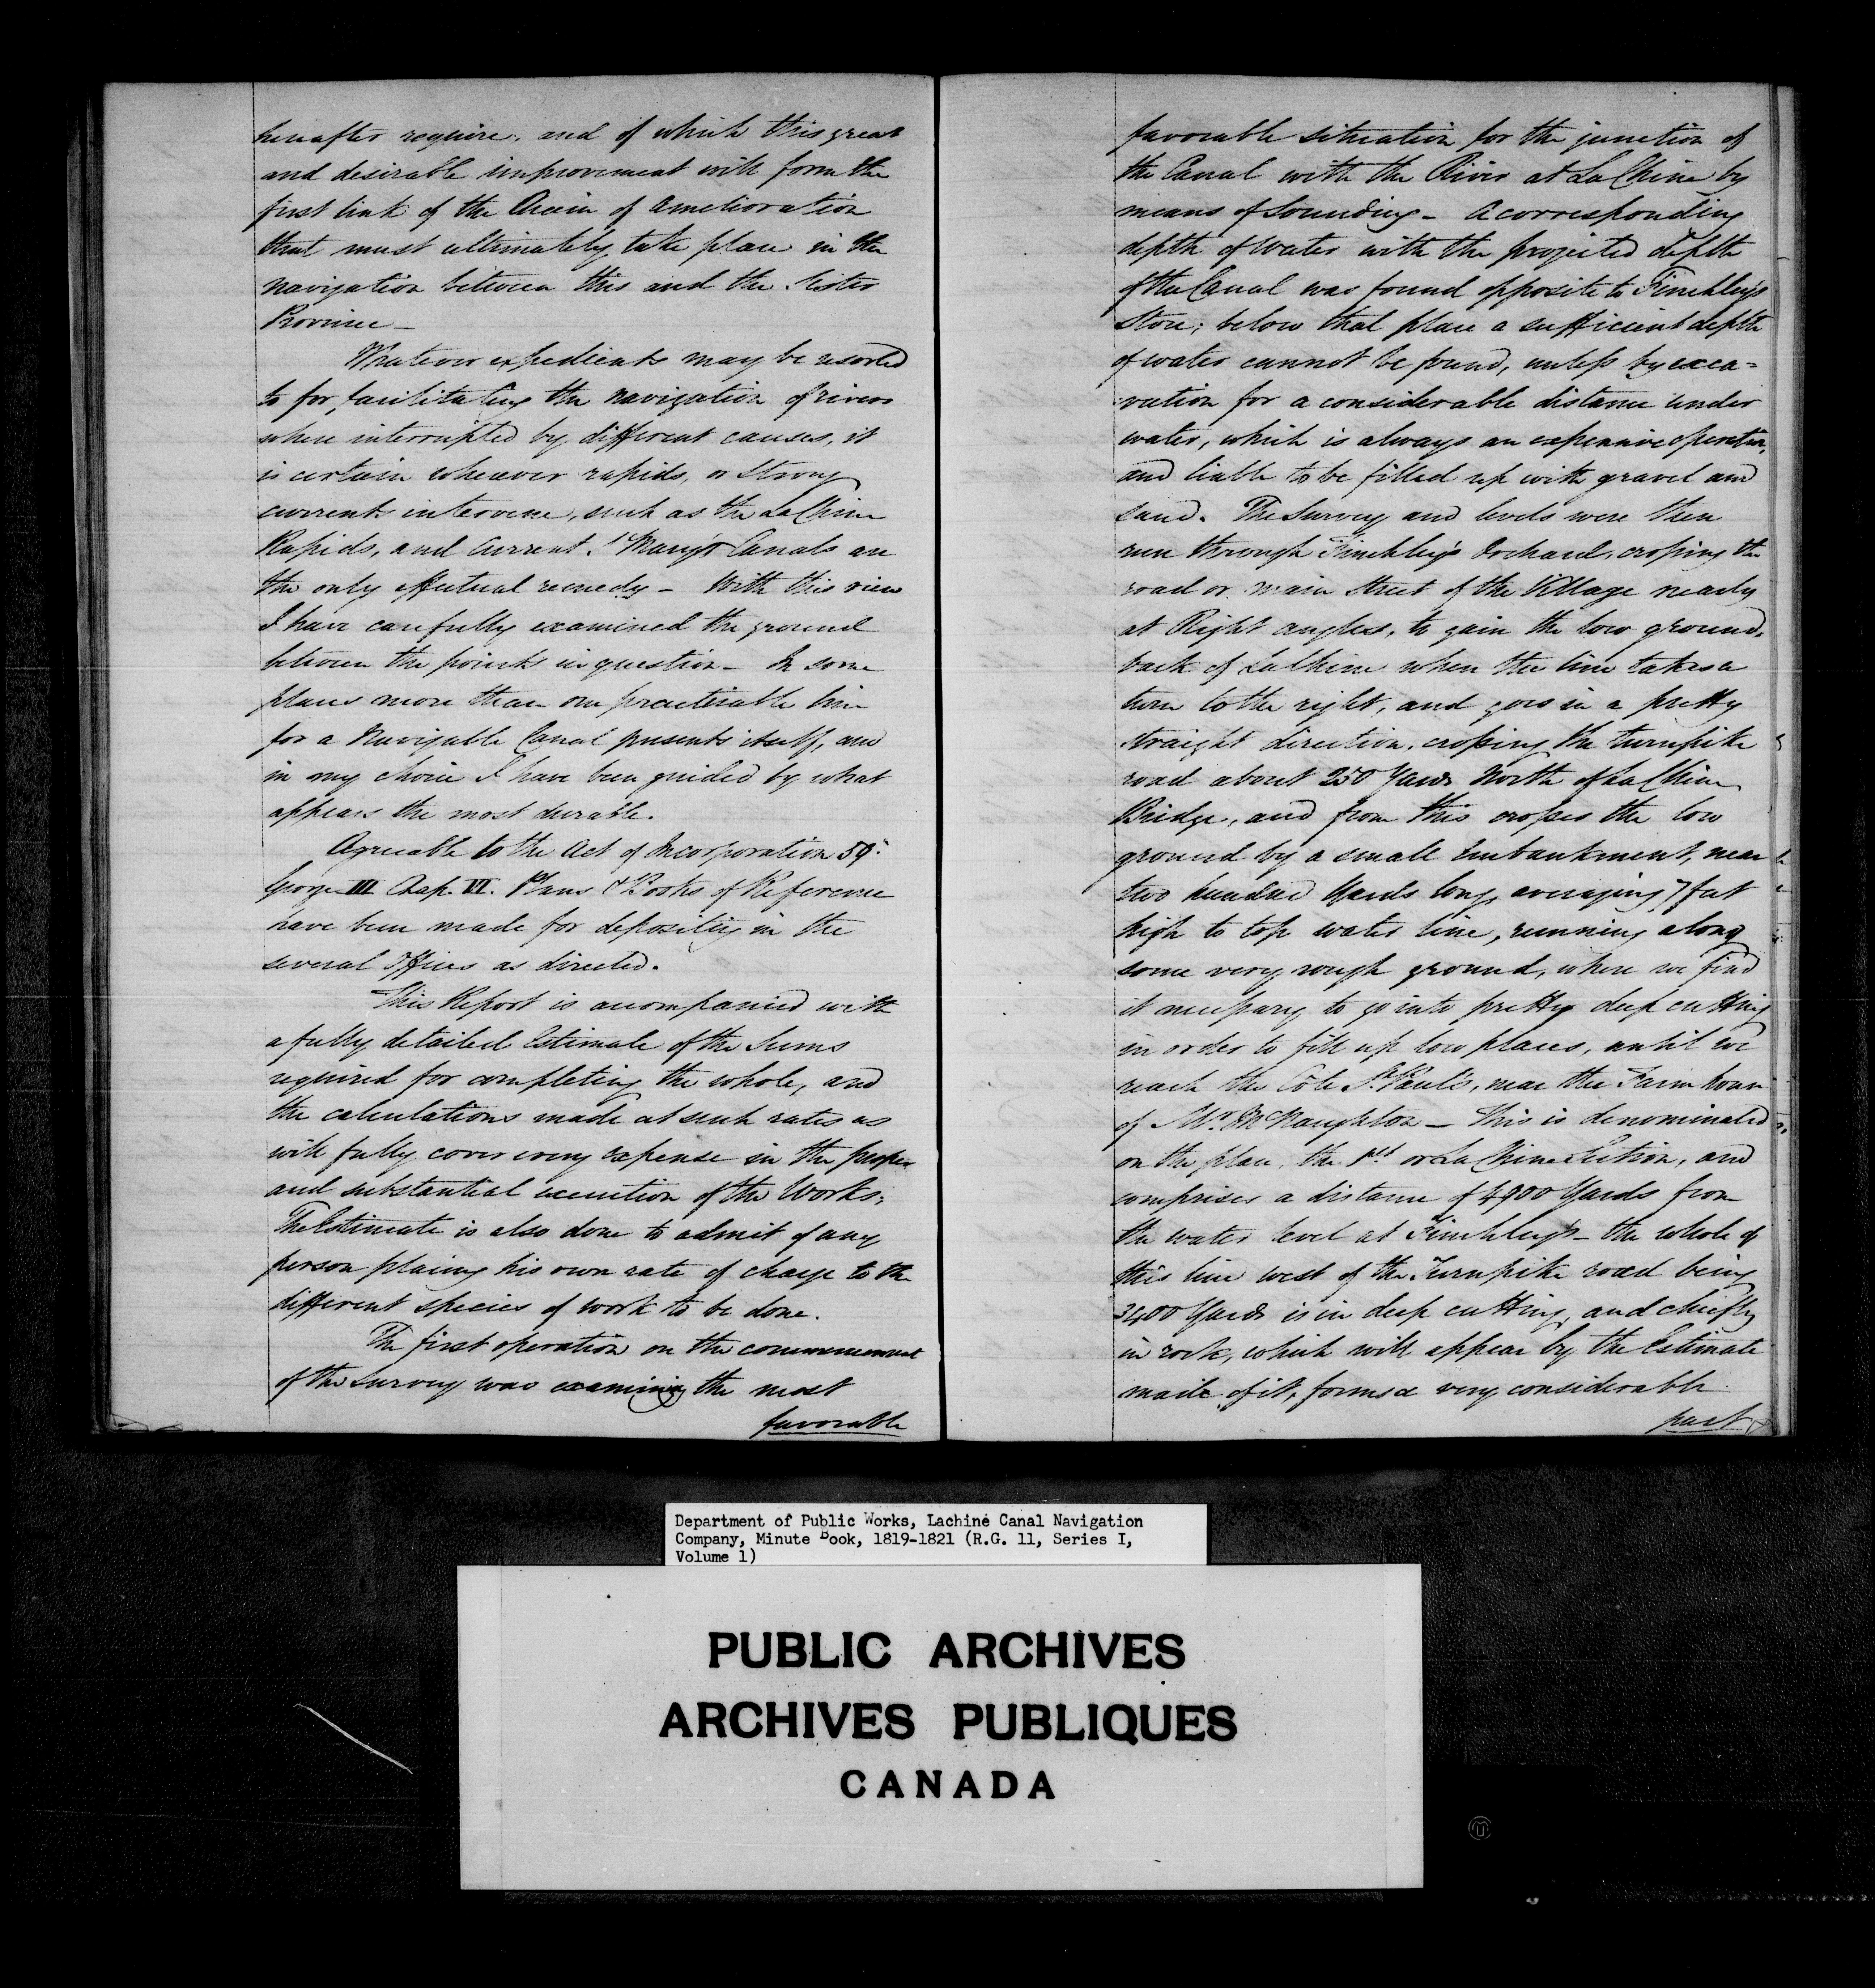 hereafter require, and of which this great
and desirable improvement will form the
first link of the Chain of Amelioration
that must ultimately take place in the
navigation between this and the Sister
Province _
Whatever expedients may be resorted
to for facilitating the navigation of rivers
where interrupted by different causes, it
is certain wherever rapids, or Strong
currents intervene, such as the LaChine
Rapids, and Current St Mary's Canals are
the only effectual remedy _ With this view
I have carefully examined the ground
between the points in question _ In some
places more than one practicable line
for a Navigable Canal presents itself, and
in my choice I have been guided by what
appears the most durable.
Agreeable to the Act of Incorporation 59.
George III Chap. VI. Plans & Books of Reference
have been made for depositing in the
several Offices as directed.
This Report is accompanied with
a fully detailed Estimate of the Sums
required for completing the whole, and
the calculations made at such rates as
will fully cover every expense in the proper
and substantial execution of the Works;
The Estimate is also done to admit of any
person placing his own rate of charge to the
different species of work to be done.
The first operation on the commencement
of the survey was examining the most
favorable
favorable situation for the junction of
the Canal with the River at LaChine by
means of Sounding _ A corresponding
depth of Water with the projected depth
of the Canal was found opposite to Finchley's
Store; below that place a sufficient depth
of water cannot be found, unless by exca=
vation for a considerable distance under
water, which is always an expensive operation,
and liable to be filled up with gravel and
sand. The Survey and levels were then
run through Finchley's Orchard, crossing the
road or main Street of the Village nearly
at Right angles, to gain the low ground,
back of LaChine when the line takes a
turn to the right, and goes in a pretty
straight direction, crossing the turnpike
road about 250 Yards North of LaChine
Bridge, and from this crosses the low
ground by a small Embankment, near
two hundred Yards long, averaging 7 feet
high to top water line, running along
some very rough ground, where we find
it necessary to go into pretty deep cutting
in order to fill up low places, until we
reach the Côte St. Paul's, near the Farm house
of Mr. McNaughton _ This is denominated
on the plan, the 1st or LaChine Section, and
comprises a distance of 4900 Yards from
the water level at Finchley's _ the whole of
this line west of the Turnpike road being
3400 Yards is in deep cutting, and chiefly
in rock, which will appear by the Estimate
made of it, forms a very considerable
part
Department of Public Works, Lachine Canal Navigation
Company, Minute Book, 1819-1821 (R.G. 11, Series I,
Volume 1)
PUBLIC ARCHIVES
ARCHIVES PUBLIQUES
CANADA